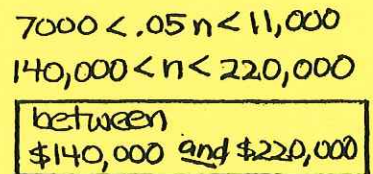 7000 < .05n < 11,000
140,000 < n < 220,000
between
$140,000 and $220,000